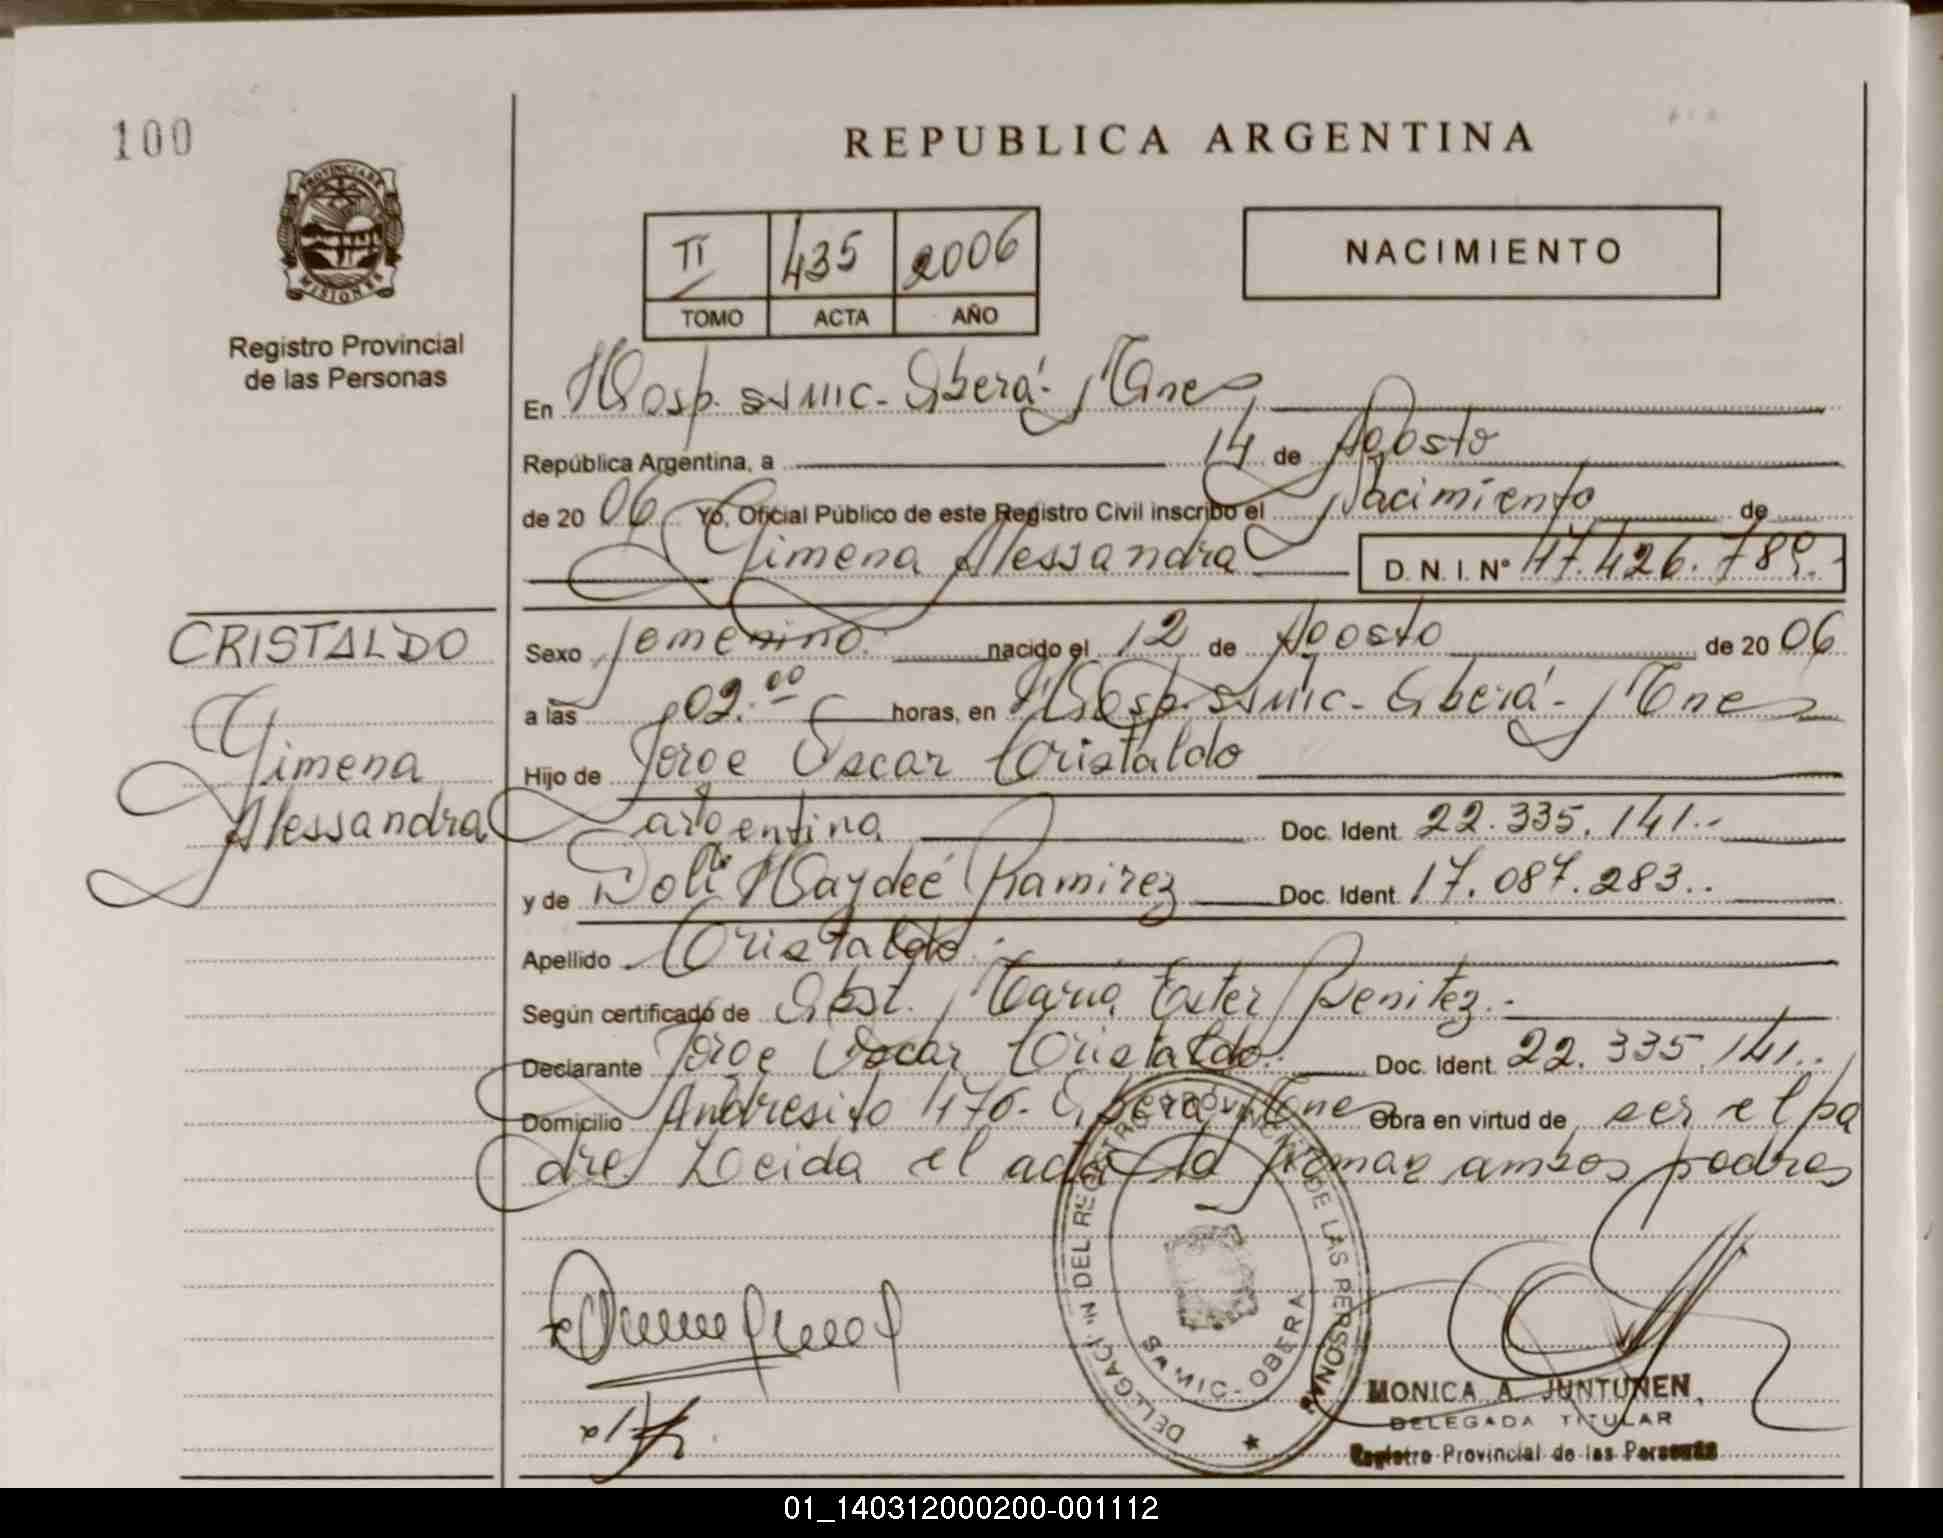 100
REPUBLICA ARGENTINA
PROVINCIA DE
MISIONES
Registro Provincial
de las Personas
TI 435 2006
TOMO ACTA AÑO
NACIMIENTO
En Hosp. SAMIC - Oberá - Mnes
República Argentina, a 14 de Agosto
de 2006 Yo, Oficial Público de este Registro Civil inscribo el Nacimiento de
Gimena Alessandra D. N. I. N° 47.426.789.
CRISTALDO
Gimena
Alessandra
Sexo femenino. nacido el 12 de Agosto de 2006
a las 02.00 horas, en Hosp. SAMIC - Oberá - Mnes
Hijo de Jorge Oscar Cristaldo
argentina Doc. Ident. 22.335.141.-
y de Doli Haydeé Ramirez Doc. Ident. 17.087.283..
Apellido Cristaldo.
Según certificado de Obst. María Ester Benitez.-
Declarante Jorge Oscar Cristaldo. Doc. Ident. 22.335.141..
Domicilio Andresito 476 - Oberá, Mnes Obra en virtud de ser el pa
dre Leida el acta la firman ambos padres
DELEGACION DEL REGISTRO PROVINCIAL DE LAS PERSONAS
SAMIC - OBERA
MONICA A. JUNTUNEN
DELEGADA TITULAR
Registro Provincial de las Personas
01_140312000200-001112